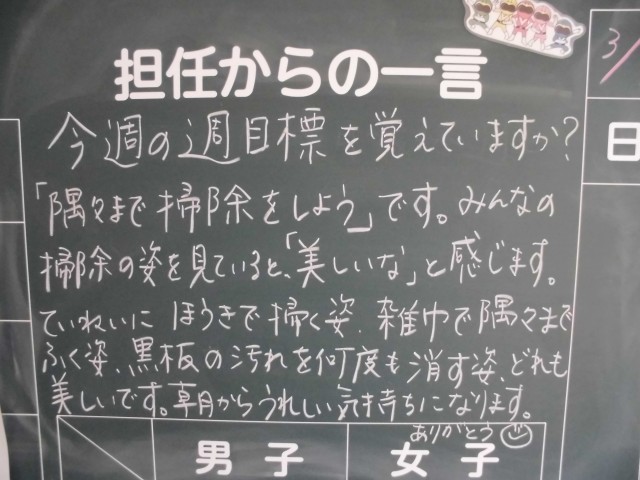 担任からの一言
3/
日
今週の週目標を覚えていますか?
「隅々まで掃除をしよう」です。みんなの
掃除の姿を見ていると、「美しいな」と感じます。
ていねいに ほうきで掃く姿、雑巾で隅々まで
ふく姿、黒板の汚れを何度も消す姿、どれも
美しいです。朝からうれしい気持ちになります。
ありがとう
男子
女子